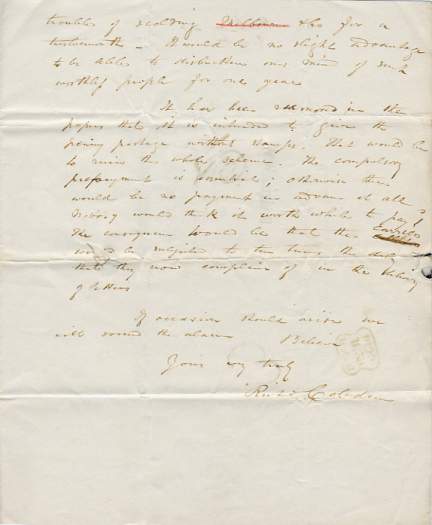 troubles of reading Melbourne &co for a
twelvemonth – It would be no slight advantage
to be able to disburthen one's mind of such
worthy people for one year
It has been rumoured in the
papers that it is intended to give the
penny postage without stamps. That would be
to ruin the whole scheme. The compulsory
prepayment is essential; otherwise there
would be no payment in advance at all
Nobody would think it worth while to pay?
The consequence would be that the
would be subjected to ten times the delay
that they now complain of in the delivery
of letters
If occasion should arise we
will sound the alarm Believe
Yours very truly
Richd Cobden